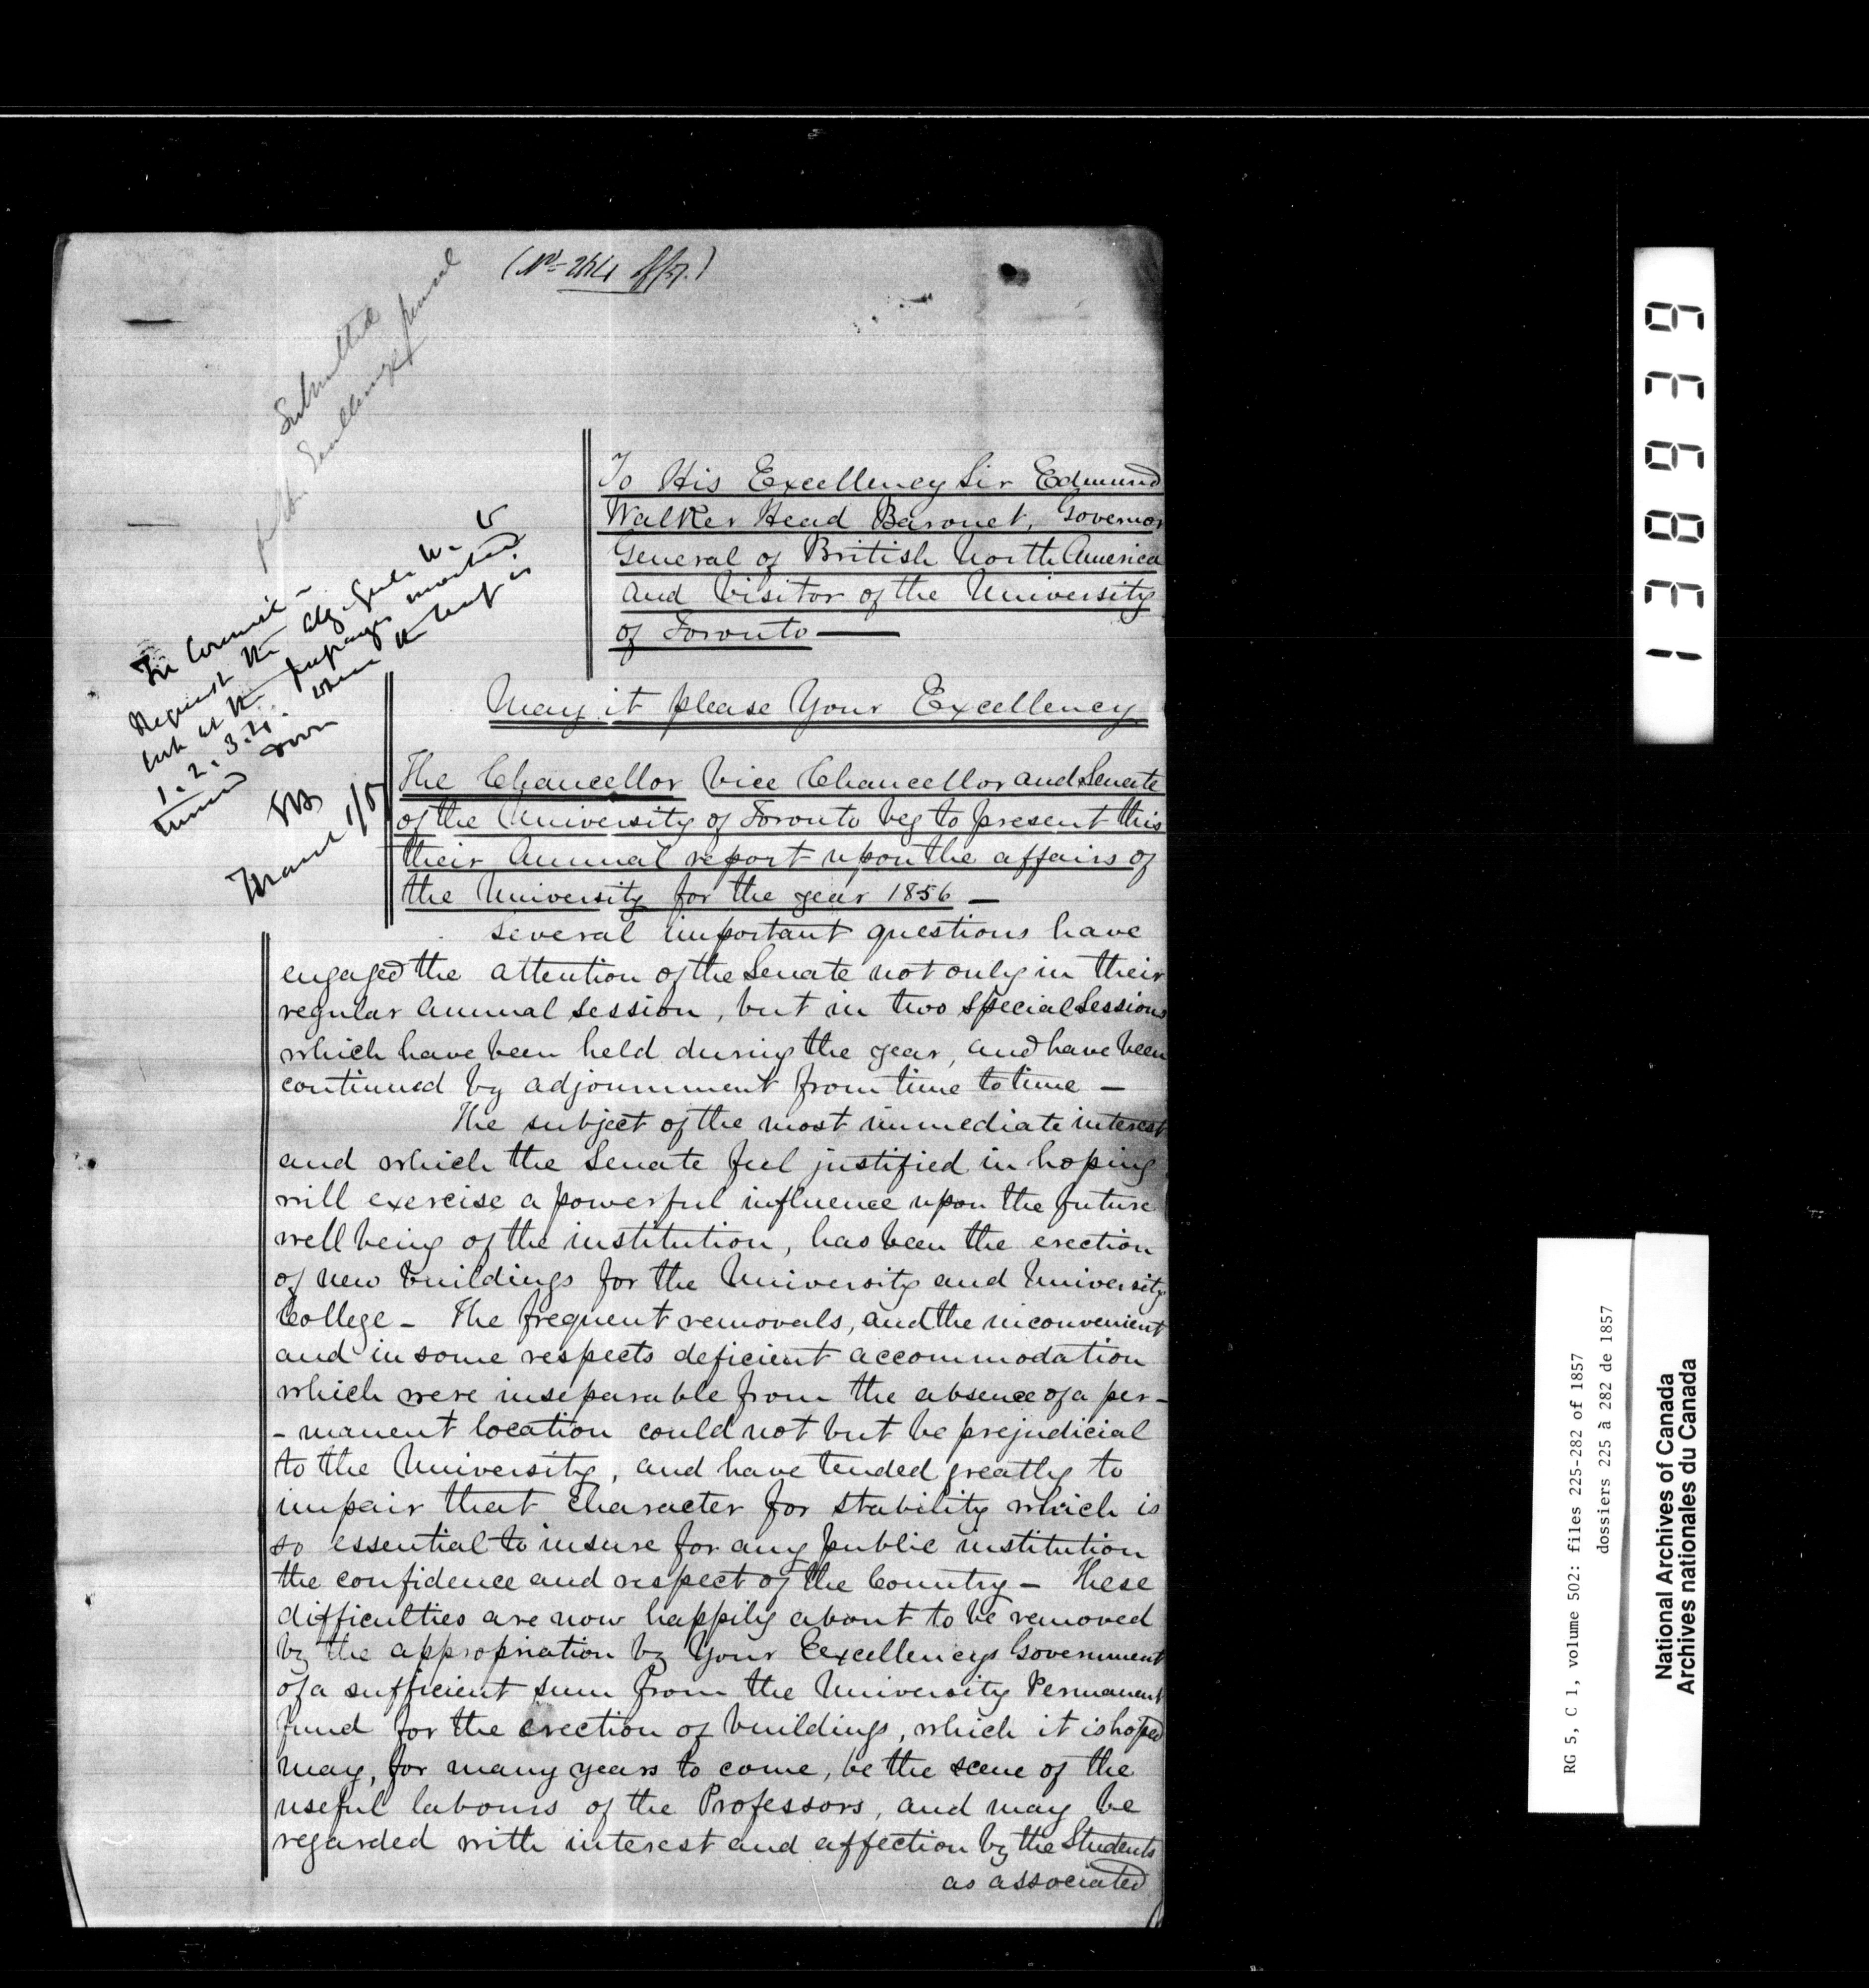 (No 244 of/57.)
Submitted
for Excellency's perusal
In Council -
Request the Atty. Genl. W. to
look at the passages marked
1. 2. 3. 4. when the draft is
turned down
March 1/57
To His Excellency Sir Edmund
Walker Head Baronet, Governor
General of British North America
and Visitor of the University
of Toronto —
May it please Your Excellency
The Chancellor Vice Chancellor and Senate
of the University of Toronto beg to present this
their Annual report upon the affairs of
the University for the year 1856 —
Several important questions have
engaged the attention of the Senate not only in their
regular annual session, but in two special Sessions
which have been held during the year, and have been
continued by adjournment from time to time —
The subject of the most immediate interest
and which the Senate feel justified in hoping
will exercise a powerful influence upon the future
well being of the institution, has been the erection
of new buildings for the University and University
College - The frequent removals, and the inconvenient
and in some respects deficient accommodation
which were inseparable from the absence of a per-
- manent location could not but be prejudicial
to the University, and have tended greatly to
impair that character for stability which is
so essential to insure for any public institution
the confidence and respect of the Country — These
difficulties are now happily about to be removed
by the appropriation by Your Excellencys Government
of a sufficient sum from the University Permanent
fund for the erection of buildings, which it is hoped
may, for many years to come, be the scene of the
useful labours of the Professors, and may be
regarded with interest and affection by the Students
as associated
138939
RG 5, C 1, volume 502: files 225-282 of 1857
dossiers 225 à 282 de 1857
National Archives of Canada
Archives nationales du Canada